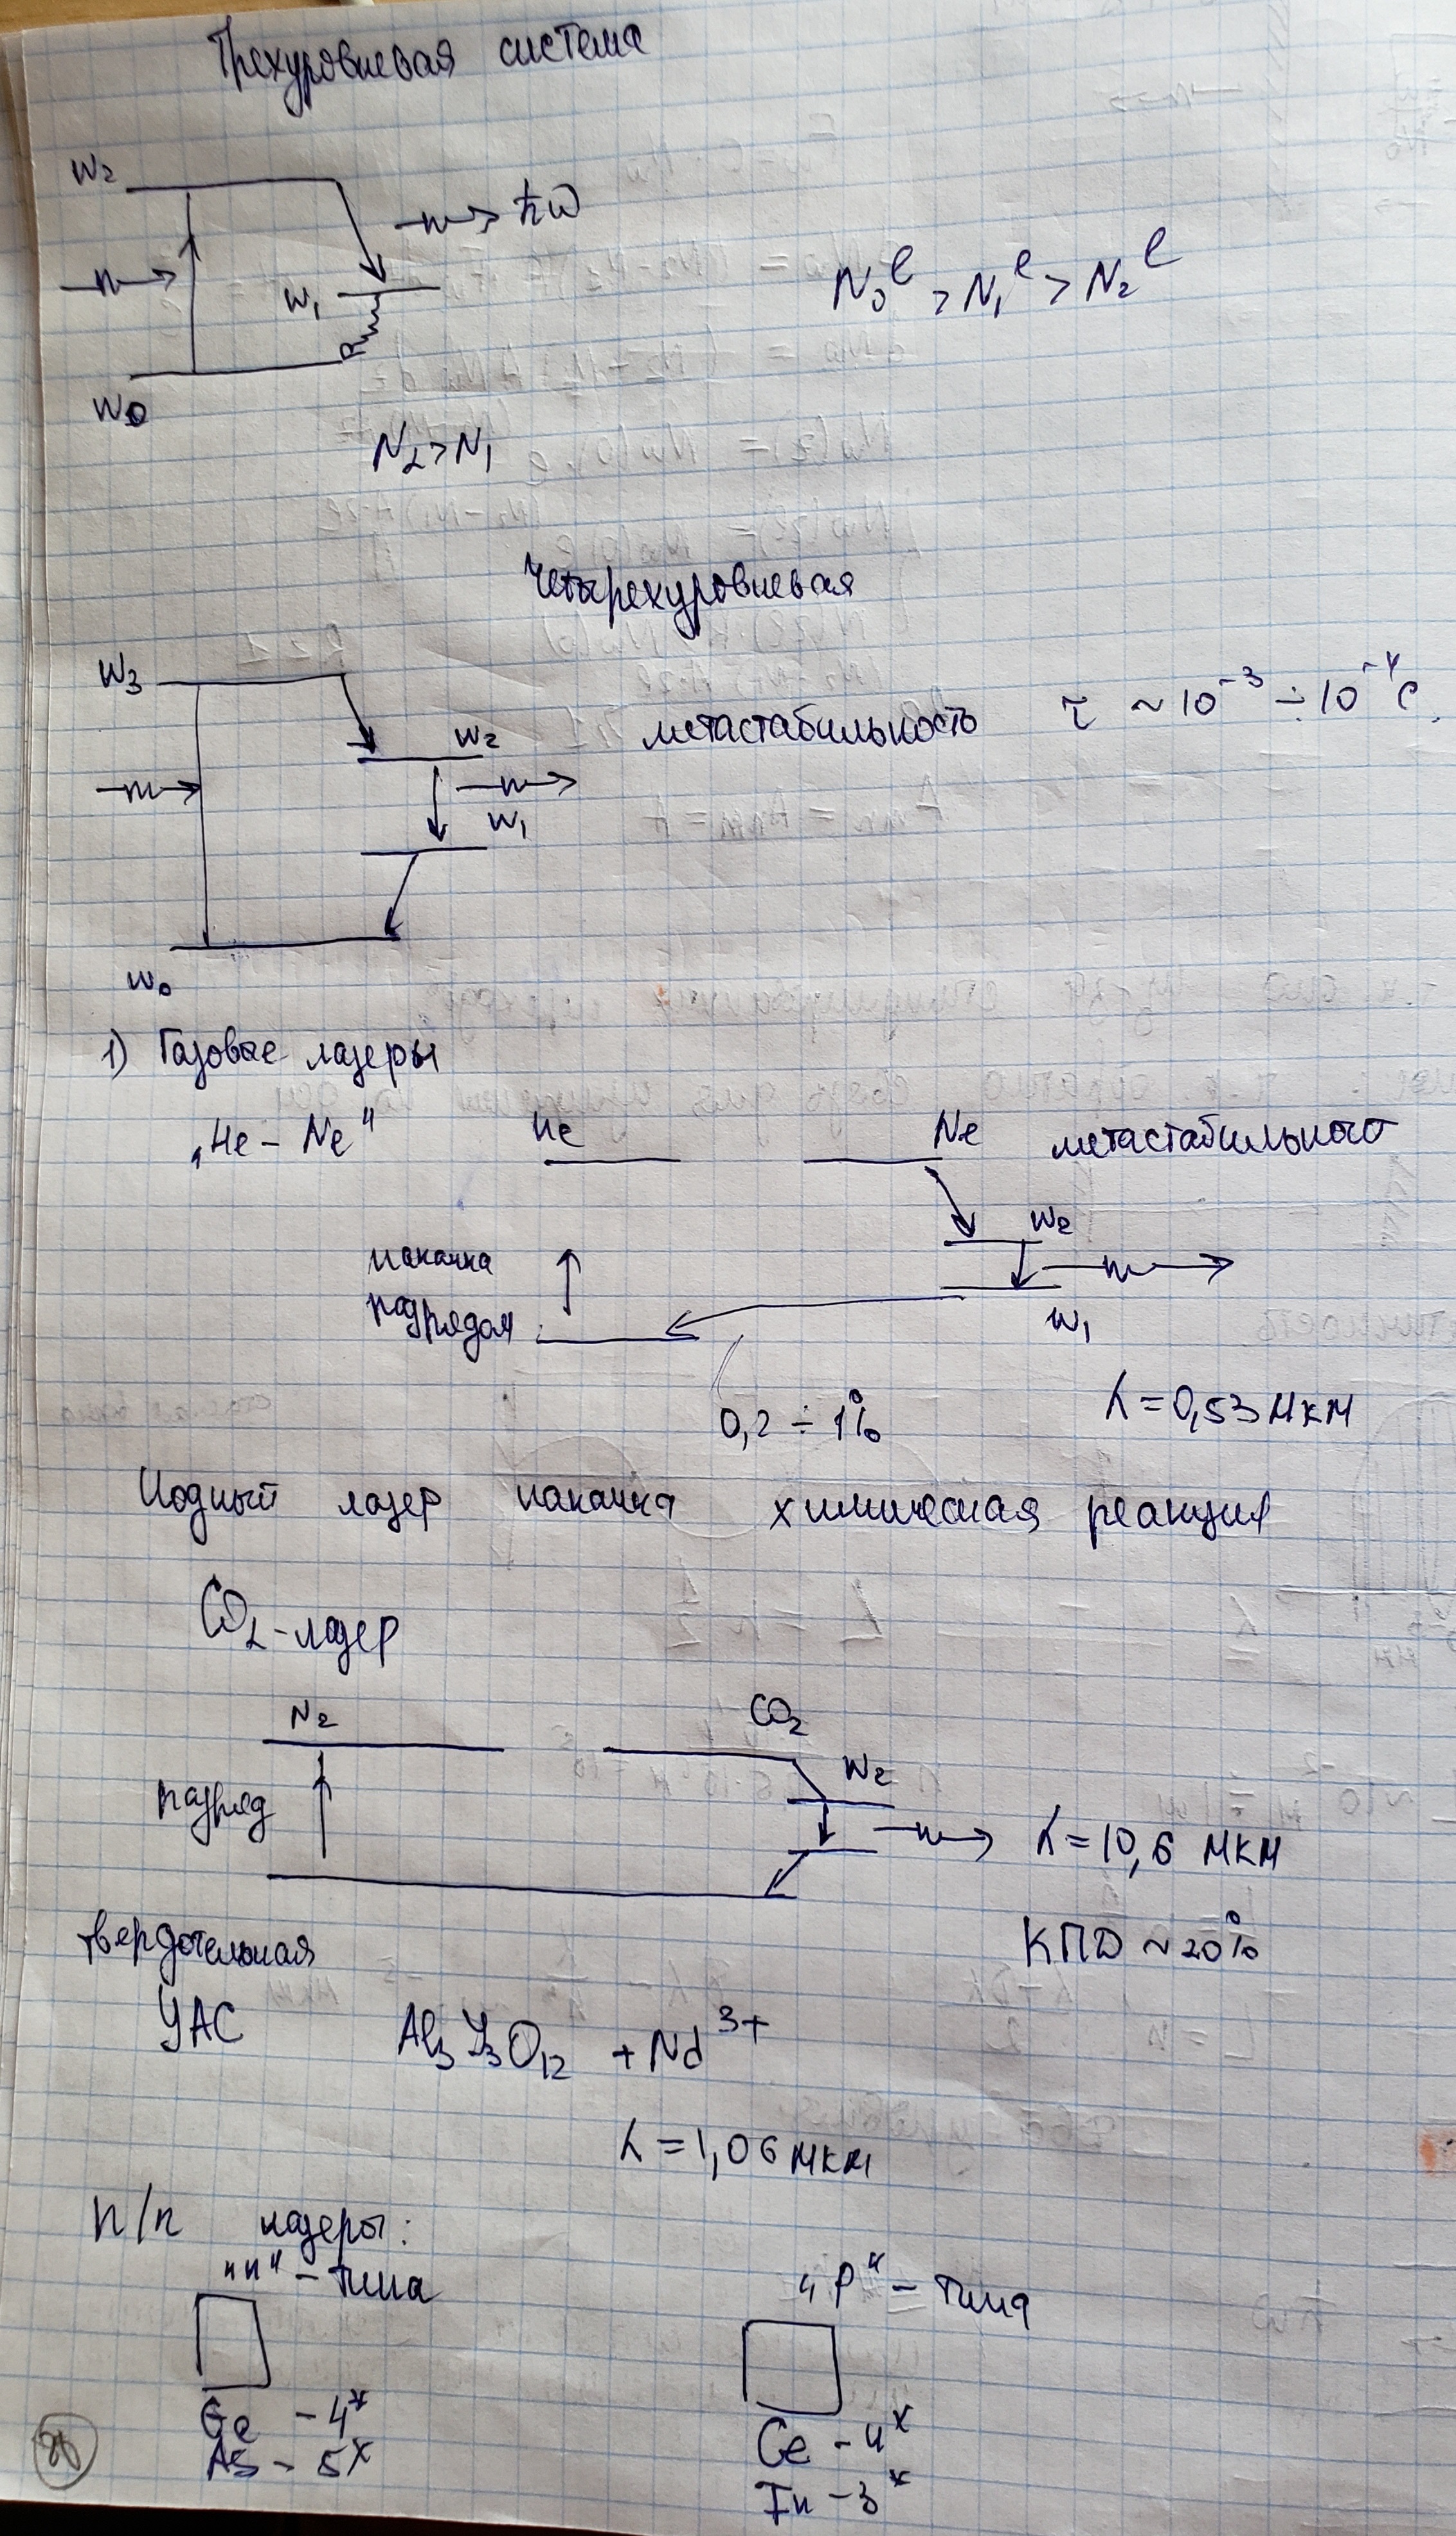 Трехуровневая система
W₂
ħω
W₁
N₀ᵉ > N₁ᵉ > N₂ᵉ
W₀
N₂ > N₁
Четырехуровневая
W₃
W₂ метастабильность τ ~ 10⁻³ ÷ 10⁻⁴ с.
W₁
W₀
1) Газовые лазеры
"He – Ne" He Ne метастабильного
W₂
накачка
разрядом
W₁
0,2 ÷ 1% λ = 0,53 мкм
Иодный лазер накачка химическая реакция
CO₂ - лазер
N₂ CO₂
W₂
разряд
λ = 10,6 мкм
твердотельная КПД ~ 20%
УАС Al₃Y₃O₁₂ + Nd³⁺
λ = 1,06 мкм
п/п лазеры:
"n" – типа "P" – типа
Ge – 4ˣ Ge – 4ˣ
As – 5ˣ In – 3ˣ